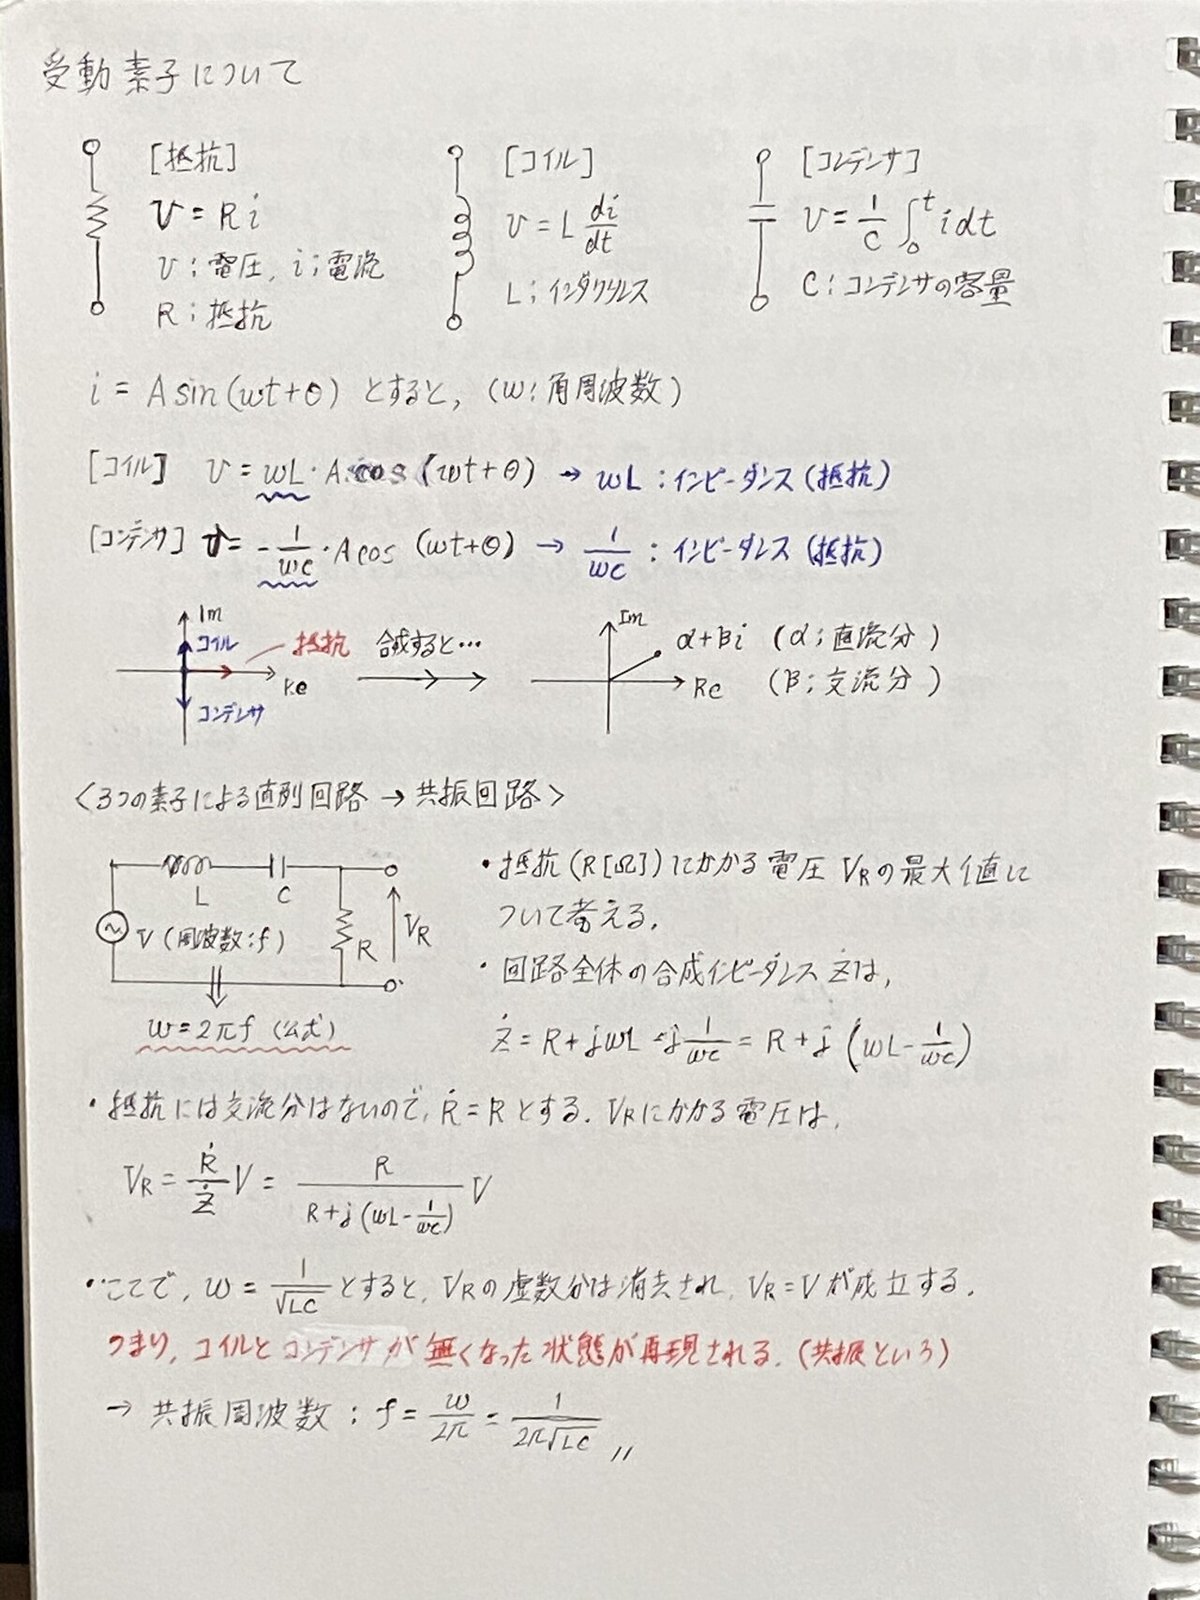 受動素子について
[抵抗]
v = Ri
v:電圧, i:電流
R:抵抗
[コイル]
v = L di/dt
L:インダクタンス
[コンデンサ]
v = 1/C ∫₀ᵗ i dt
C:コンデンサの容量
i = A sin(ωt+θ) とすると, (ω:角周波数)
[コイル] v = ωL・A cos (ωt+θ) → ωL:インピーダンス(抵抗)
[コンデンサ] v = -1/ωC・A cos (ωt+θ) → 1/ωC:インピーダンス(抵抗)
Im
コイル
抵抗
Re
コンデンサ
合成すると…
Im
α+βi (α:直流分)
Re (β:交流分)
<3つの素子による直列回路 → 共振回路>
L C
V(周波数:f) R VR
ω=2πf (公式)
・抵抗(R[Ω])にかかる電圧VRの最大値に
ついて考える.
・回路全体の合成インピーダンスŻは,
Ż = R+jωL-j 1/ωC = R+j (ωL-1/ωC)
・抵抗には交流分はないので, Ṙ=Rとする. VRにかかる電圧は,
VR = Ṙ/Ż V = R/(R+j(ωL-1/ωC)) V
・ここで, ω = 1/√LC とすると, VRの虚数分は消去され, VR=Vが成立する.
つまり, コイルとコンデンサが無くなった状態が再現される. (共振という)
→ 共振周波数:f = ω/2π = 1/2π√LC 〃